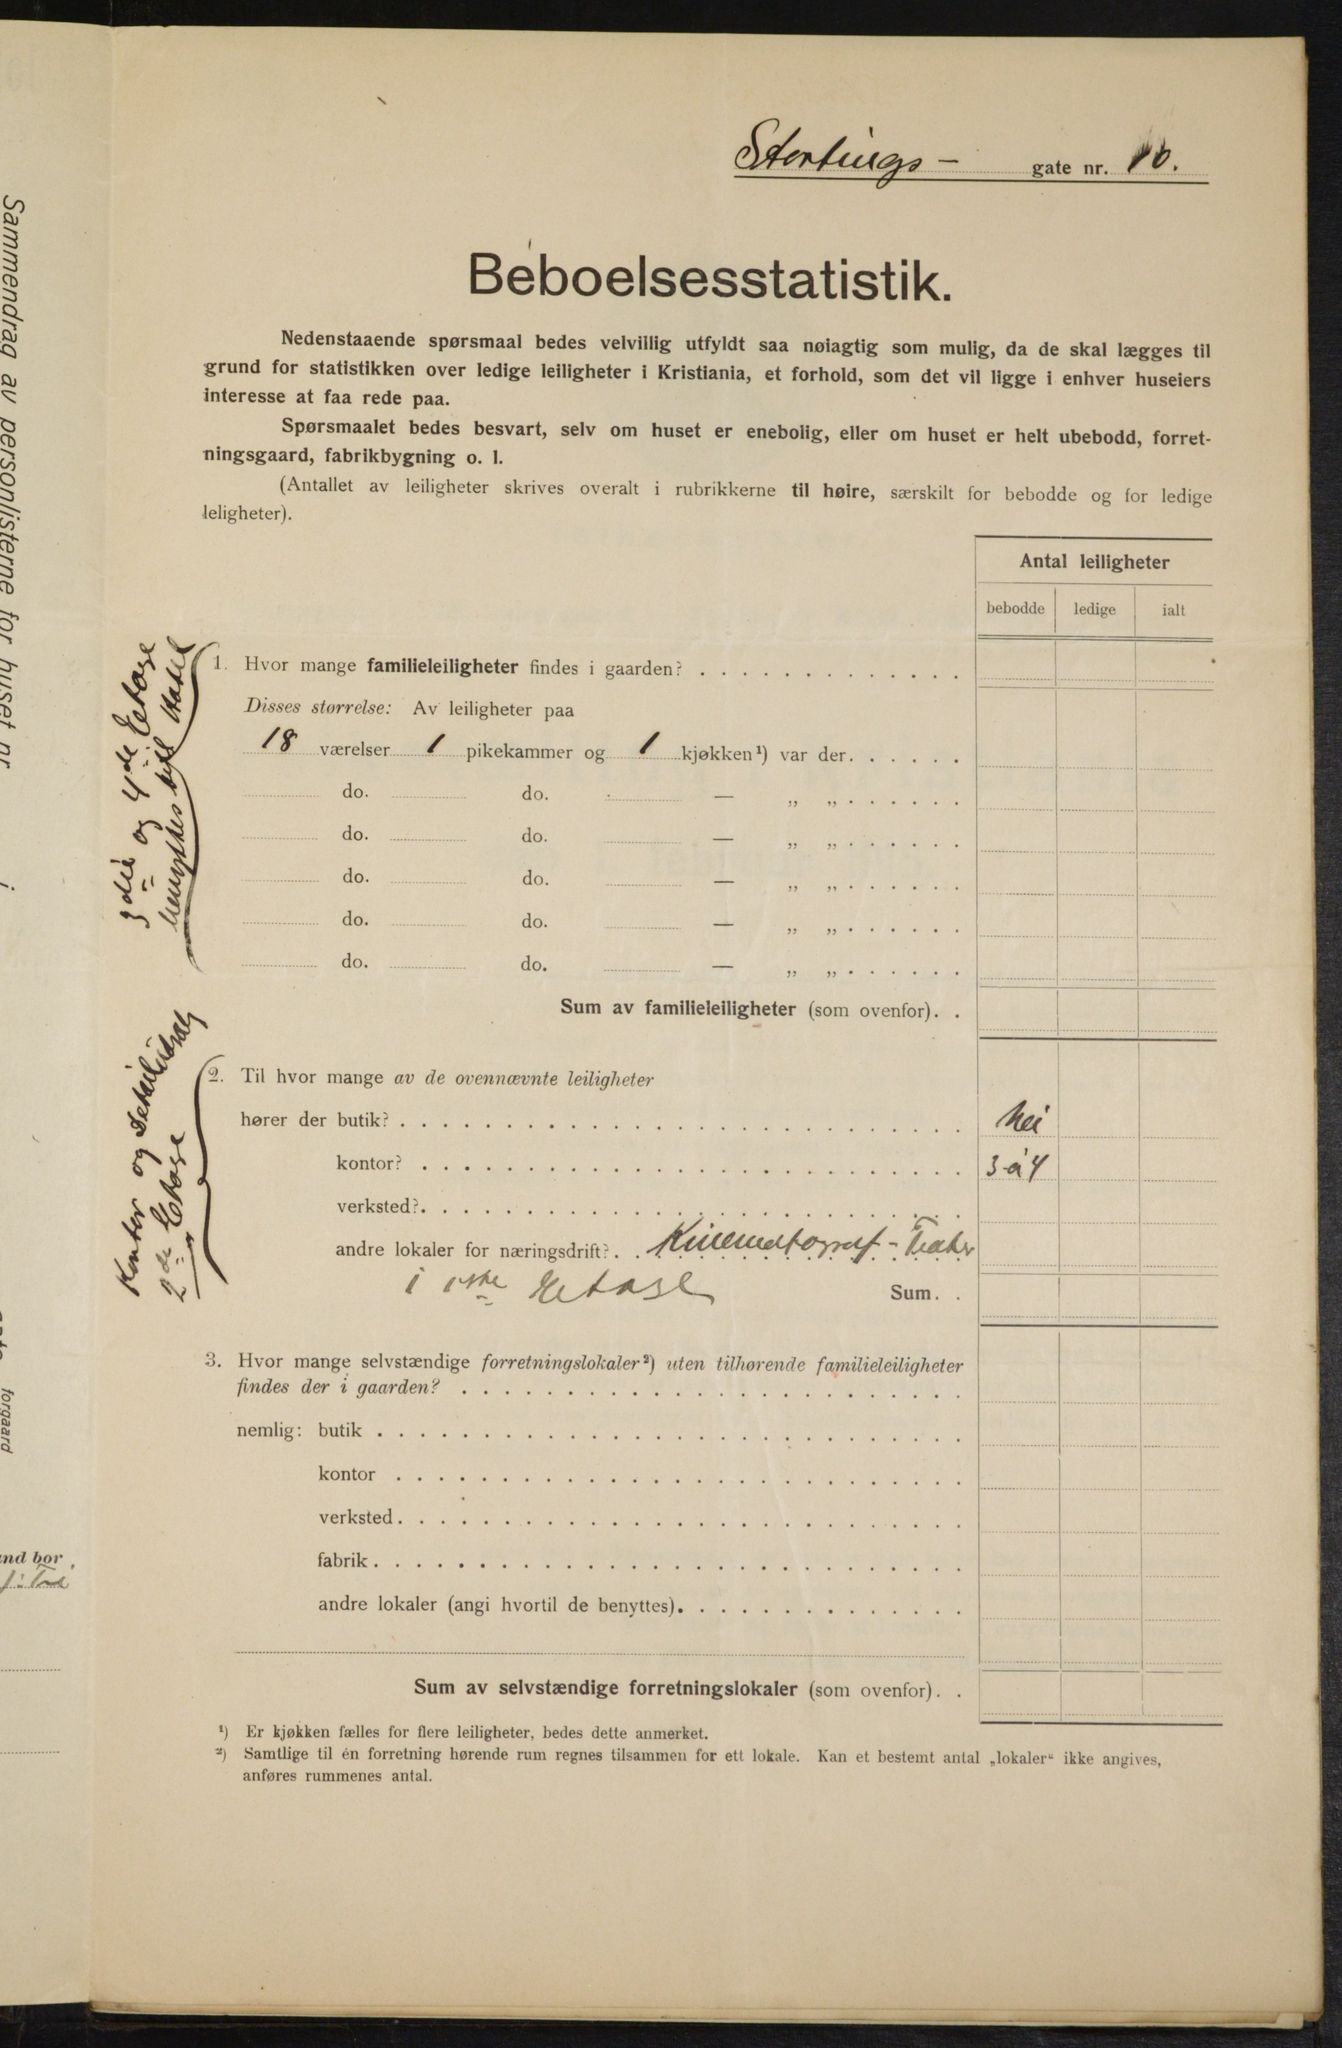 Stortings- gate nr. 10.
Beboelsesstatistik.
Nedenstaaende spørsmaal bedes velvillig utfyldt saa nøiagtig som mulig, da de skal lægges til
grund for statistikken over ledige leiligheter i Kristiania, et forhold, som det vil ligge i enhver huseiers
interesse at faa rede paa.
Spørsmaalet bedes besvart, selv om huset er enebolig, eller om huset er helt ubebodd, forret-
ningsgaard, fabrikbygning o. l.
(Antallet av leiligheter skrives overalt i rubrikkerne til høire, særskilt for bebodde og for ledige
leligheter).
Antal leiligheter
bebodde ledige ialt
1. Hvor mange familieleiligheter findes i gaarden? . . . . . . . . . . . . .
Disses størrelse: Av leiligheter paa
18 værelser 1 pikekammer og 1 kjøkken¹) var der. . . . . .
do. do. — „ „ . . . . . .
do. do. — „ „ . . . . . .
do. do. — „ „ . . . . . .
do. do. — „ „ . . . . . .
do. do. — „ „ . . . . . .
Sum av familieleiligheter (som ovenfor). .
3die og 4de Etage
benyttes till Hotel
2. Til hvor mange av de ovennævnte leiligheter
hører der butik? . . . . . . . . . . . . . . . . . . . . . . . . . . Nei
kontor? . . . . . . . . . . . . . . . . . . . . . . . . . 3 à 4
verksted?. . . . . . . . . . . . . . . . . . . . . . . . .
andre lokaler for næringsdrift?. . Kinematograf-Teater
i 1ste Etage Sum. .
Kontor og
2de Etage
3. Hvor mange selvstændige forretningslokaler²) uten tilhørende familieleiligheter
findes der i gaarden? . . . . . . . . . . . . . . . . . . . . . . .
nemlig: butik . . . . . . . . . . . . . . . . . . . . . . . . . . .
kontor . . . . . . . . . . . . . . . . . . . . . . . . . .
verksted. . . . . . . . . . . . . . . . . . . . . . . . . .
fabrik. . . . . . . . . . . . . . . . . . . . . . . . . . .
andre lokaler (angi hvortil de benyttes). . . . . . . . . . . . . .
Sum av selvstændige forretningslokaler (som ovenfor). .
¹) Er kjøkken fælles for flere leiligheter, bedes dette anmerket.
²) Samtlige til én forretning hørende rum regnes tilsammen for ett lokale. Kan et bestemt antal „lokaler“ ikke angives,
anføres rummenes antal.
Sammendrag av personlisterne for huset nr.
forgaard
and bor